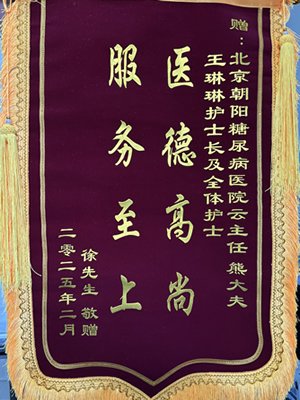 赠：北京朝阳糖尿病医院云主任 熊大夫
王琳琳护士长及全体护士
医德高尚
服务至上
徐先生 敬赠
二零二五年二月